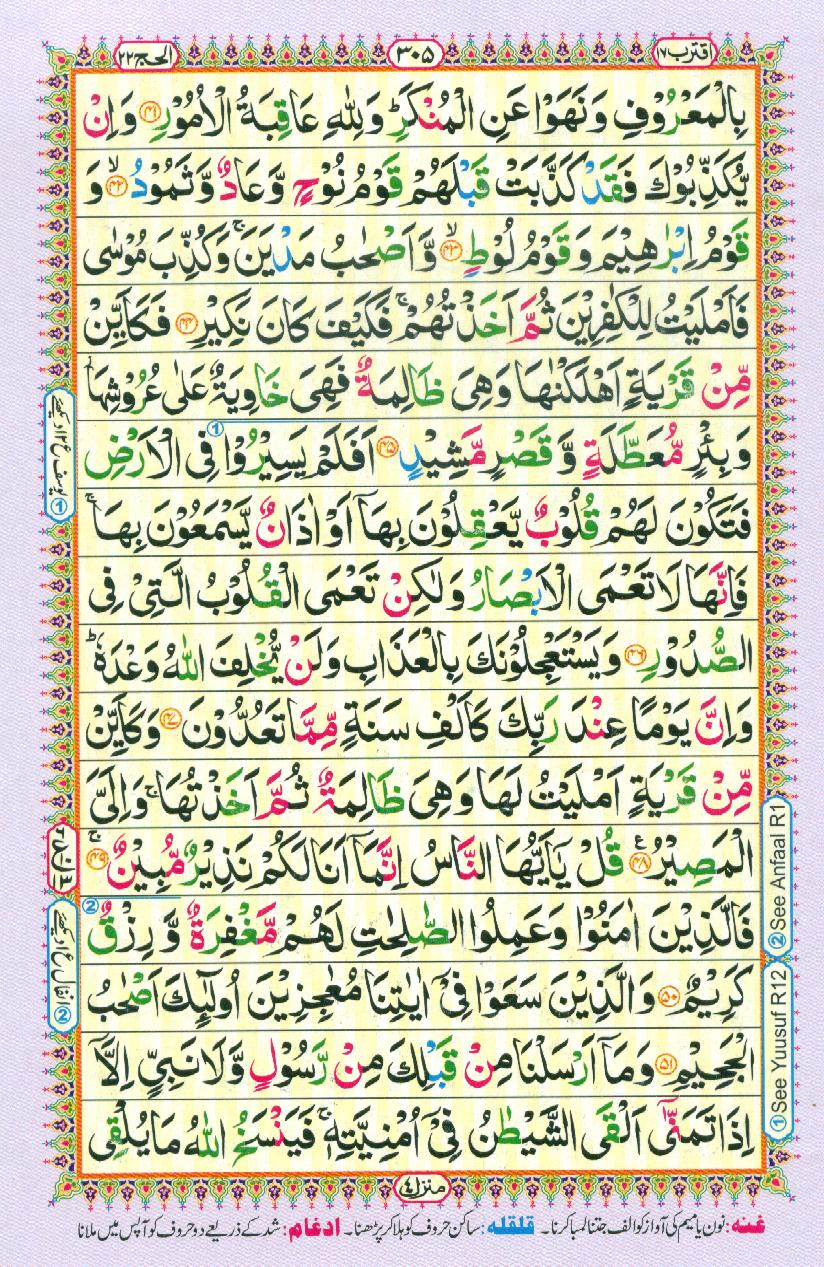 اقترب ١٧
٣٠٥
الحج ٢٢
بِالْمَعْرُوْفِ وَنَهَوْا عَنِ الْمُنْكَرِؕ وَلِلّٰهِ عَاقِبَةُ الْاُمُوْرِ ﴿۴۱﴾ وَاِنْ
يُّكَذِّبُوْكَ فَقَدْ كَذَّبَتْ قَبْلَهُمْ قَوْمُ نُوْحٍ وَّعَادٌ وَّثَمُوْدُۙ ﴿۴۲﴾ وَ
قَوْمُ اِبْرٰهِيْمَ وَقَوْمُ لُوْطٍۙ ﴿۴۳﴾ وَّاَصْحٰبُ مَدْيَنَۚ وَكُذِّبَ مُوْسٰى
فَاَمْلَيْتُ لِلْكٰفِرِيْنَ ثُمَّ اَخَذْتُهُمْۚ فَكَيْفَ كَانَ نَكِيْرِ ﴿۴۴﴾ فَكَاَيِّنْ
مِّنْ قَرْيَةٍ اَهْلَكْنٰهَا وَهِىَ ظَالِمَةٌ فَهِىَ خَاوِيَةٌ عَلٰى عُرُوْشِهَا
وَبِئْرٍ مُّعَطَّلَةٍ وَّقَصْرٍ مَّشِيْدٍ ﴿۴۵﴾ ① اَفَلَمْ يَسِيْرُوْا فِى الْاَرْضِ
فَتَكُوْنَ لَهُمْ قُلُوْبٌ يَّعْقِلُوْنَ بِهَاۤ اَوْ اٰذَانٌ يَّسْمَعُوْنَ بِهَاۚ
فَاِنَّهَا لَا تَعْمَى الْاَبْصَارُ وَلٰكِنْ تَعْمَى الْقُلُوْبُ الَّتِىْ فِى
الصُّدُوْرِ ﴿۴۶﴾ وَيَسْتَعْجِلُوْنَكَ بِالْعَذَابِ وَلَنْ يُّخْلِفَ اللّٰهُ وَعْدَهٗؕ
وَاِنَّ يَوْمًا عِنْدَ رَبِّكَ كَاَلْفِ سَنَةٍ مِّمَّا تَعُدُّوْنَ ﴿۴۷﴾ وَكَاَيِّنْ
مِّنْ قَرْيَةٍ اَمْلَيْتُ لَهَا وَهِىَ ظَالِمَةٌ ثُمَّ اَخَذْتُهَاۚ وَاِلَىَّ
الْمَصِيْرُ ﴿۴۸﴾ قُلْ يٰۤاَيُّهَا النَّاسُ اِنَّمَاۤ اَنَا لَكُمْ نَذِيْرٌ مُّبِيْنٌۚ ﴿۴۹﴾
فَالَّذِيْنَ اٰمَنُوْا وَعَمِلُوا الصّٰلِحٰتِ لَهُمْ مَّغْفِرَةٌ وَّرِزْقٌ ②
كَرِيْمٌ ﴿۵۰﴾ وَالَّذِيْنَ سَعَوْا فِىْۤ اٰيٰتِنَا مُعٰجِزِيْنَ اُولٰٓئِكَ اَصْحٰبُ
الْجَحِيْمِ ﴿۵۱﴾ وَمَاۤ اَرْسَلْنَا مِنْ قَبْلِكَ مِنْ رَّسُوْلٍ وَّلَا نَبِىٍّ اِلَّاۤ
اِذَا تَمَنّٰٓى اَلْقَى الشَّيْطٰنُ فِىْۤ اُمْنِيَّتِهٖۚ فَيَنْسَخُ اللّٰهُ مَا يُلْقِى
② See Anfaal R1
① See Yuusuf R12
① یوسف ع ۱۲ دیکھیے
② انفال ع ۱ دیکھیے
منزل ۴
غنہ: نون یا میم کی آواز کو الف جتنا لمبا کرنا۔ قلقلہ: ساکن حروف کو ہلا کر پڑھنا۔ ادغام: شد کے ذریعے دو حروف کو آپس میں ملانا